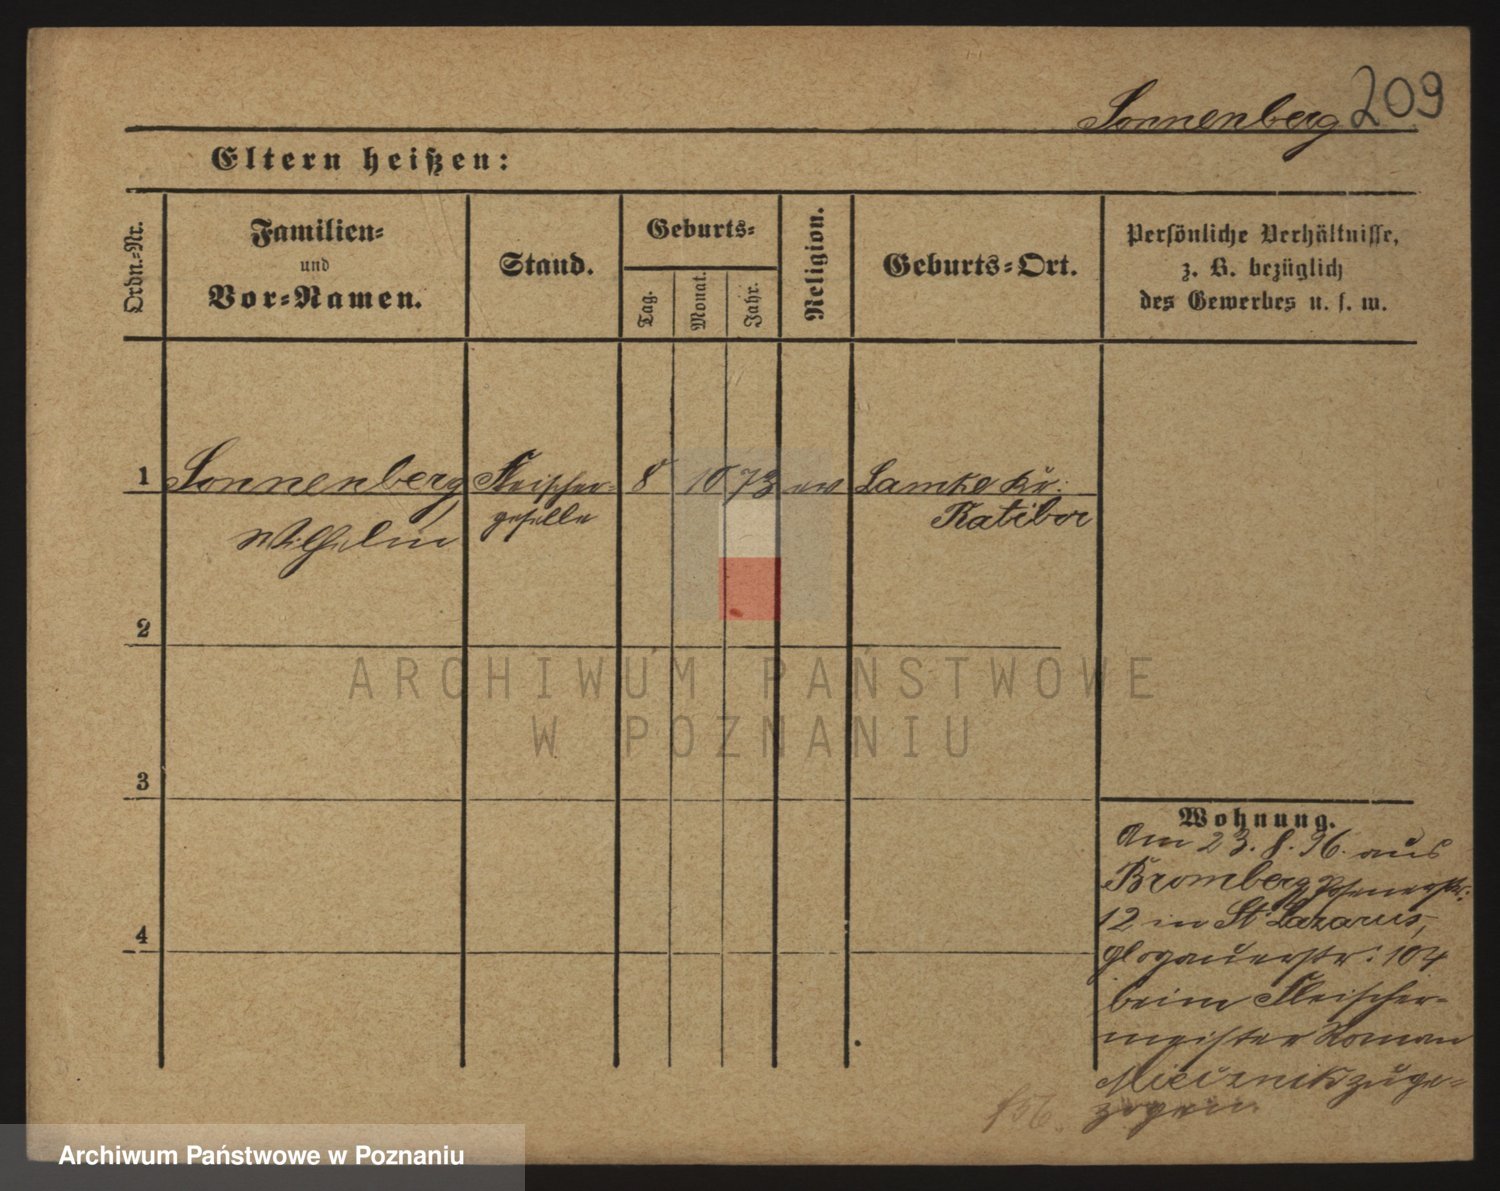 Sonnenberg 209
Eltern heißen:
Ordn.-Nr.
Familien-
und
Vor-Namen.
Stand.
Geburts-
Tag.
Monat.
Jahr.
Religion.
Geburts-Ort.
Persönliche Verhältnisse,
z. B. bezüglich
des Gewerbes u. s. w.
1 Sonnenberg Fleischer- 8 10 73 ev Kr:
Wilhelm geselle Ratibor
2
3
4
Wohnung.
Am 23. 8. 96. aus
Bromberg Posenerstr:
12 in St Lazarus,
glogauerstr: 104
beim Fleischer-
meister Roman
zuge-
zogen.
ARCHIWUM PAŃSTWOWE
W POZNANIU
Archiwum Państwowe w Poznaniu